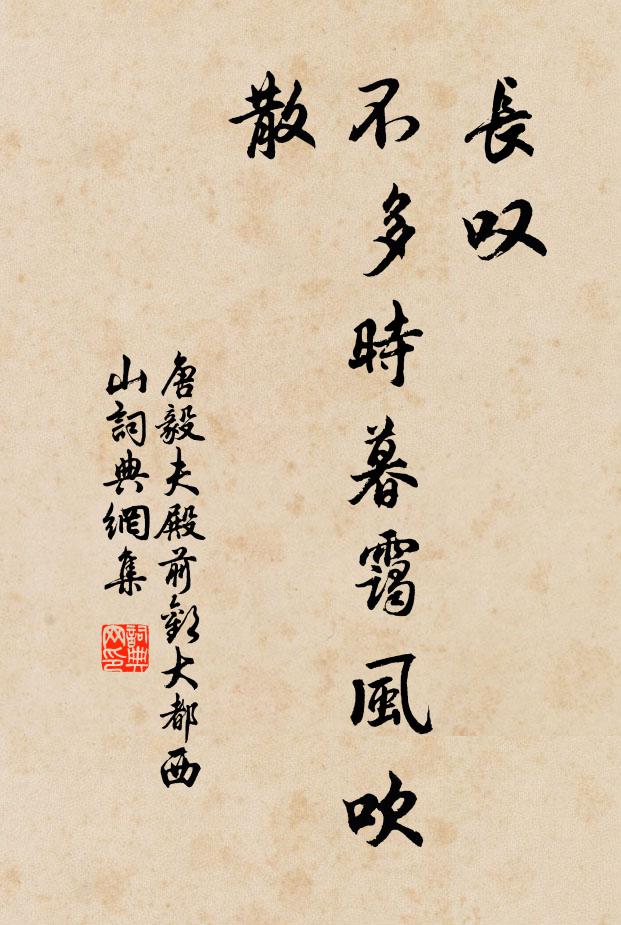 長叹
不多時暮靄風吹
散
唐毅夫殿前歡大都西
山詞典網集
詞典
网印